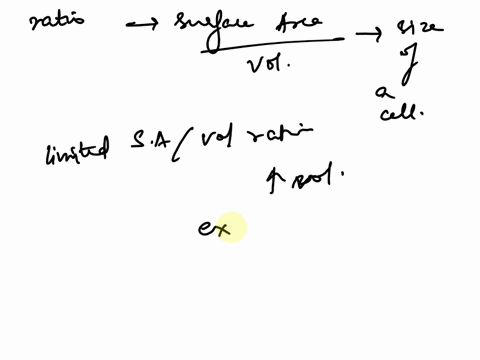 ratio → Surface Area / Vol. → size of a cell.
limited S.A / vol ratio
↑ vol.
ex